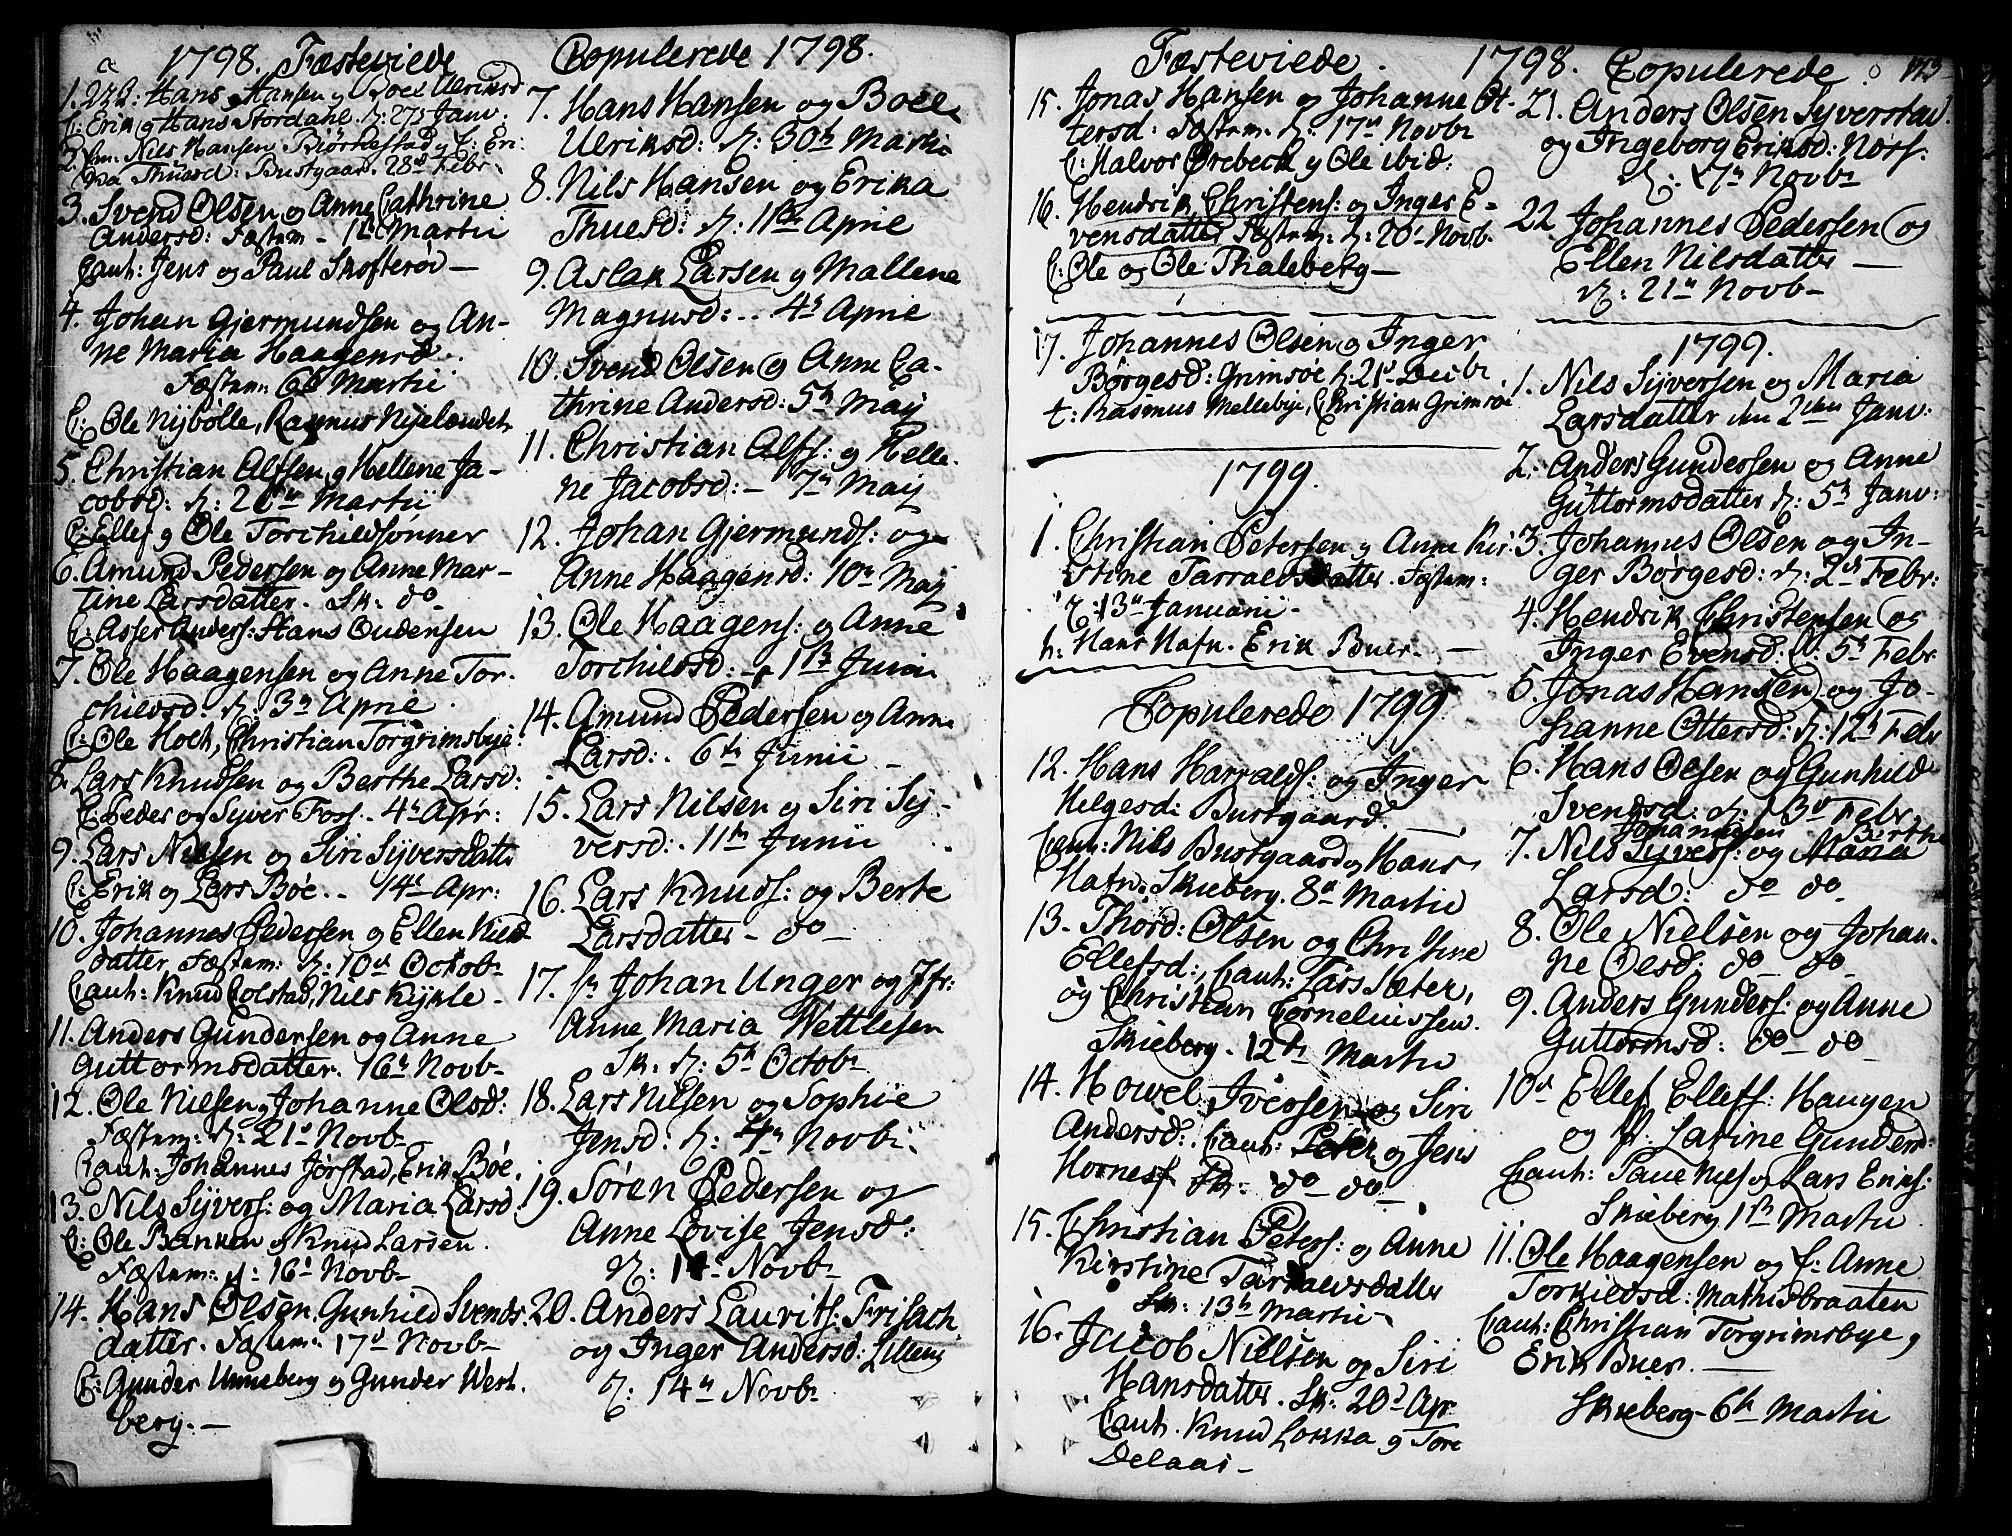 1798. Fæsteviede
1. Hans Hansen og Boel Ulriksd
C: Erik og Hans Stordahl. 27 Janv.
2. Nils Hansen Biørnestad og E: Eri-
ka Thuesd: Bustgaar. 28d Febr.
3. Svend Olsen og Anne Cathrine
Andersd: Fæstem – 1th Martii
Caut: Jens og Paul Skofterød –
4. Johan Gjermundsen og An-
ne Maria Haagensd.
Fæstem: Martii
C: Ole Nybølle, Rasmus Nyelændet
5. Christian Alfsen og Hellene Ja-
cobsd: d: Martii
C: Ellef og Ole Torchildsønner
6. Amund Pedersen og Anne Mar-
tine Larsdatter. Sk: do
C: Asser Anders: Hans Oudensen
7. Ole Haagensen og Anne Tor-
childsd. d: 3d April.
C: Ole Holt, Christian Torgrimsbye:
8. Lars Knudsen og Berthe Larsd:
C: Peder og Syver Foss. 4de Apr:
9. Lars Nielsen og Siri Syversdatt
C: Erik og Lars Bøe.. 14de Apr:
10. Johannes Pedersen og Ellen Niels-
datter Fæstem: d: 10d Octobr
Caut: Knud Colstad, Nils Kykle –
11. Anders Gundersen og Anne
Guttormsdatter. 16de Novbr
12. Ole Nielsen og Johanne Olsd:
Fæstem: d: 21d Novbr
Caut: Johannes Jørstad, Erik Bøe.
13. Nils Syvers: og Maria Larsd:
C: Ole Bakken og Knud Larsen.
Fæstem: d: 16d Novbr
14. Hans Olsen, Gunhild Svends-
datter. Fæstem: 17d Novbr
C: Gunder Unneberg og Gunder West-
berg. –
Copulerede 1798.
7. Hans Hansen og Boel
Ulriksd: d: 30th Martii
8. Nils Hansen og Erika
Thuesd: d: 11te April
9. Aslak Larsen og Mallene
Magnusd: .. 4de April
10. Svend Olsen og Anne Ca-
thrine Andersd: 5th May
11. Christian Alfs: og Helle-
ne Jacobsd: – 7de May
12. Johan Gjermunds: og
Anne Haagensd: 10de May
13. Ole Haagens: og Anne
Torchildsd: – 1th Junii
14. Amund Pedersen og Anne
Larsd: 6te Junii –
15. Lars Nilsen og Siri Sy-
versd: 11th Junii
16. Lars Knuds: og Berte
Larsdatter – do –
17. Sr Johan Unger og Jfr:
Anne Maria Wettlesen
Sk: d: 5th Octobr
18. Lars Nilsen og Sophie
Jensd: d: Novbr
19. Søren Pedersen og
Anne Lovise Jensd:
d: 14de Novbr
20. Anders Laurits: Frisach
og Inger Andersd: Lillens
d: 14de Novbr
Fæsteviede. 1798.
15. Jonas Hansen og Johanne Ot-
tersd: Fæstem: d: 17de Novbr
C: Halvor Ørebeck og Ole ibid:
16. Hendrik Christens: og Inger E-
vensdatter Fæstem: d: 20de Novb.
C: Ole og Ole Thaleberg –
17. Johannes Olsen og Inger
Børgesd: Grimsøe d: 21d Decbr
C: Rasmus Mellebye, Christian Grimsøe
1799.
1. Christian Petersen og Anne Kir-
stine Tarraldsdatter. Fæstem:
d: 13de Januarii –
h: Hans Hafn. Erik Buer. –
Copulerede 1799.
12. Hans Harralds: og Inger
Helgesd: Bustgaard. –
Caut: Nils Bustgaard og Hans
Hafn. Skieberg. 8de Martii
13. Thord: Olsen og Christine
Ellefsd: Caut: Lars Sæter,
og Christian Corneliussen.
Skieberg. 12th Martii
14. Howel Iversen og Siri
Andersd: Caut: Peter og Jens
Hornes Sk: do – do –
15. Christian Peters: og Anne
Kirstine Tarraldsdatter
Sk: 13th Martii
16. Jacob Nielsen og Siri
Hansdatter. Sk: 20d Apr
Caut. Knud Lokka og Tore
Delaas –
Copulerede 143
21. Anders Olsen Syverstad
og Ingeborg Eriksd: Nors.
d: 17de Novbr
22 Johannes Pedersen og
Ellen Nilsdatter –
d: 21de Novb –
1799.
1. Nils Syversen og Maria
Larsdatter den 2den Janv:
2. Anders Gundersen og Anne
Guttormsdatter d: 5te Janv:
3. Johannes Olsen og In-
ger Børgesd: d: 2de Febr:
4. Hendrik Christensen og
Inger Evensd: d. 5de Febr
5. Jonas Hansen og Jo-
hanne Ottersd: d: 12te Febr
6. Hans Olsen og Gunhild
Svendsd: d: 13d Febr
Johannesen Birthe
7. Nils Syvers: og Maria
Larsd: do do
8. Ole Nielsen og Johan-
ne Olsd: do – do –
9. Anders Gunders: og Anne
Guttormsd: do – do
10d Ellef Ellefs: Haugen
og Larine Gundersd:
Caut: Paul Niels og Lars Eriks:
Skieberg 1th Martii
11. Ole Haagensen og E: Anne
Torkieldsd: Mathisbraaten
Caut: Christian Torgrimsbye og
Erik Buer. –
Skieberg – 6te Martii